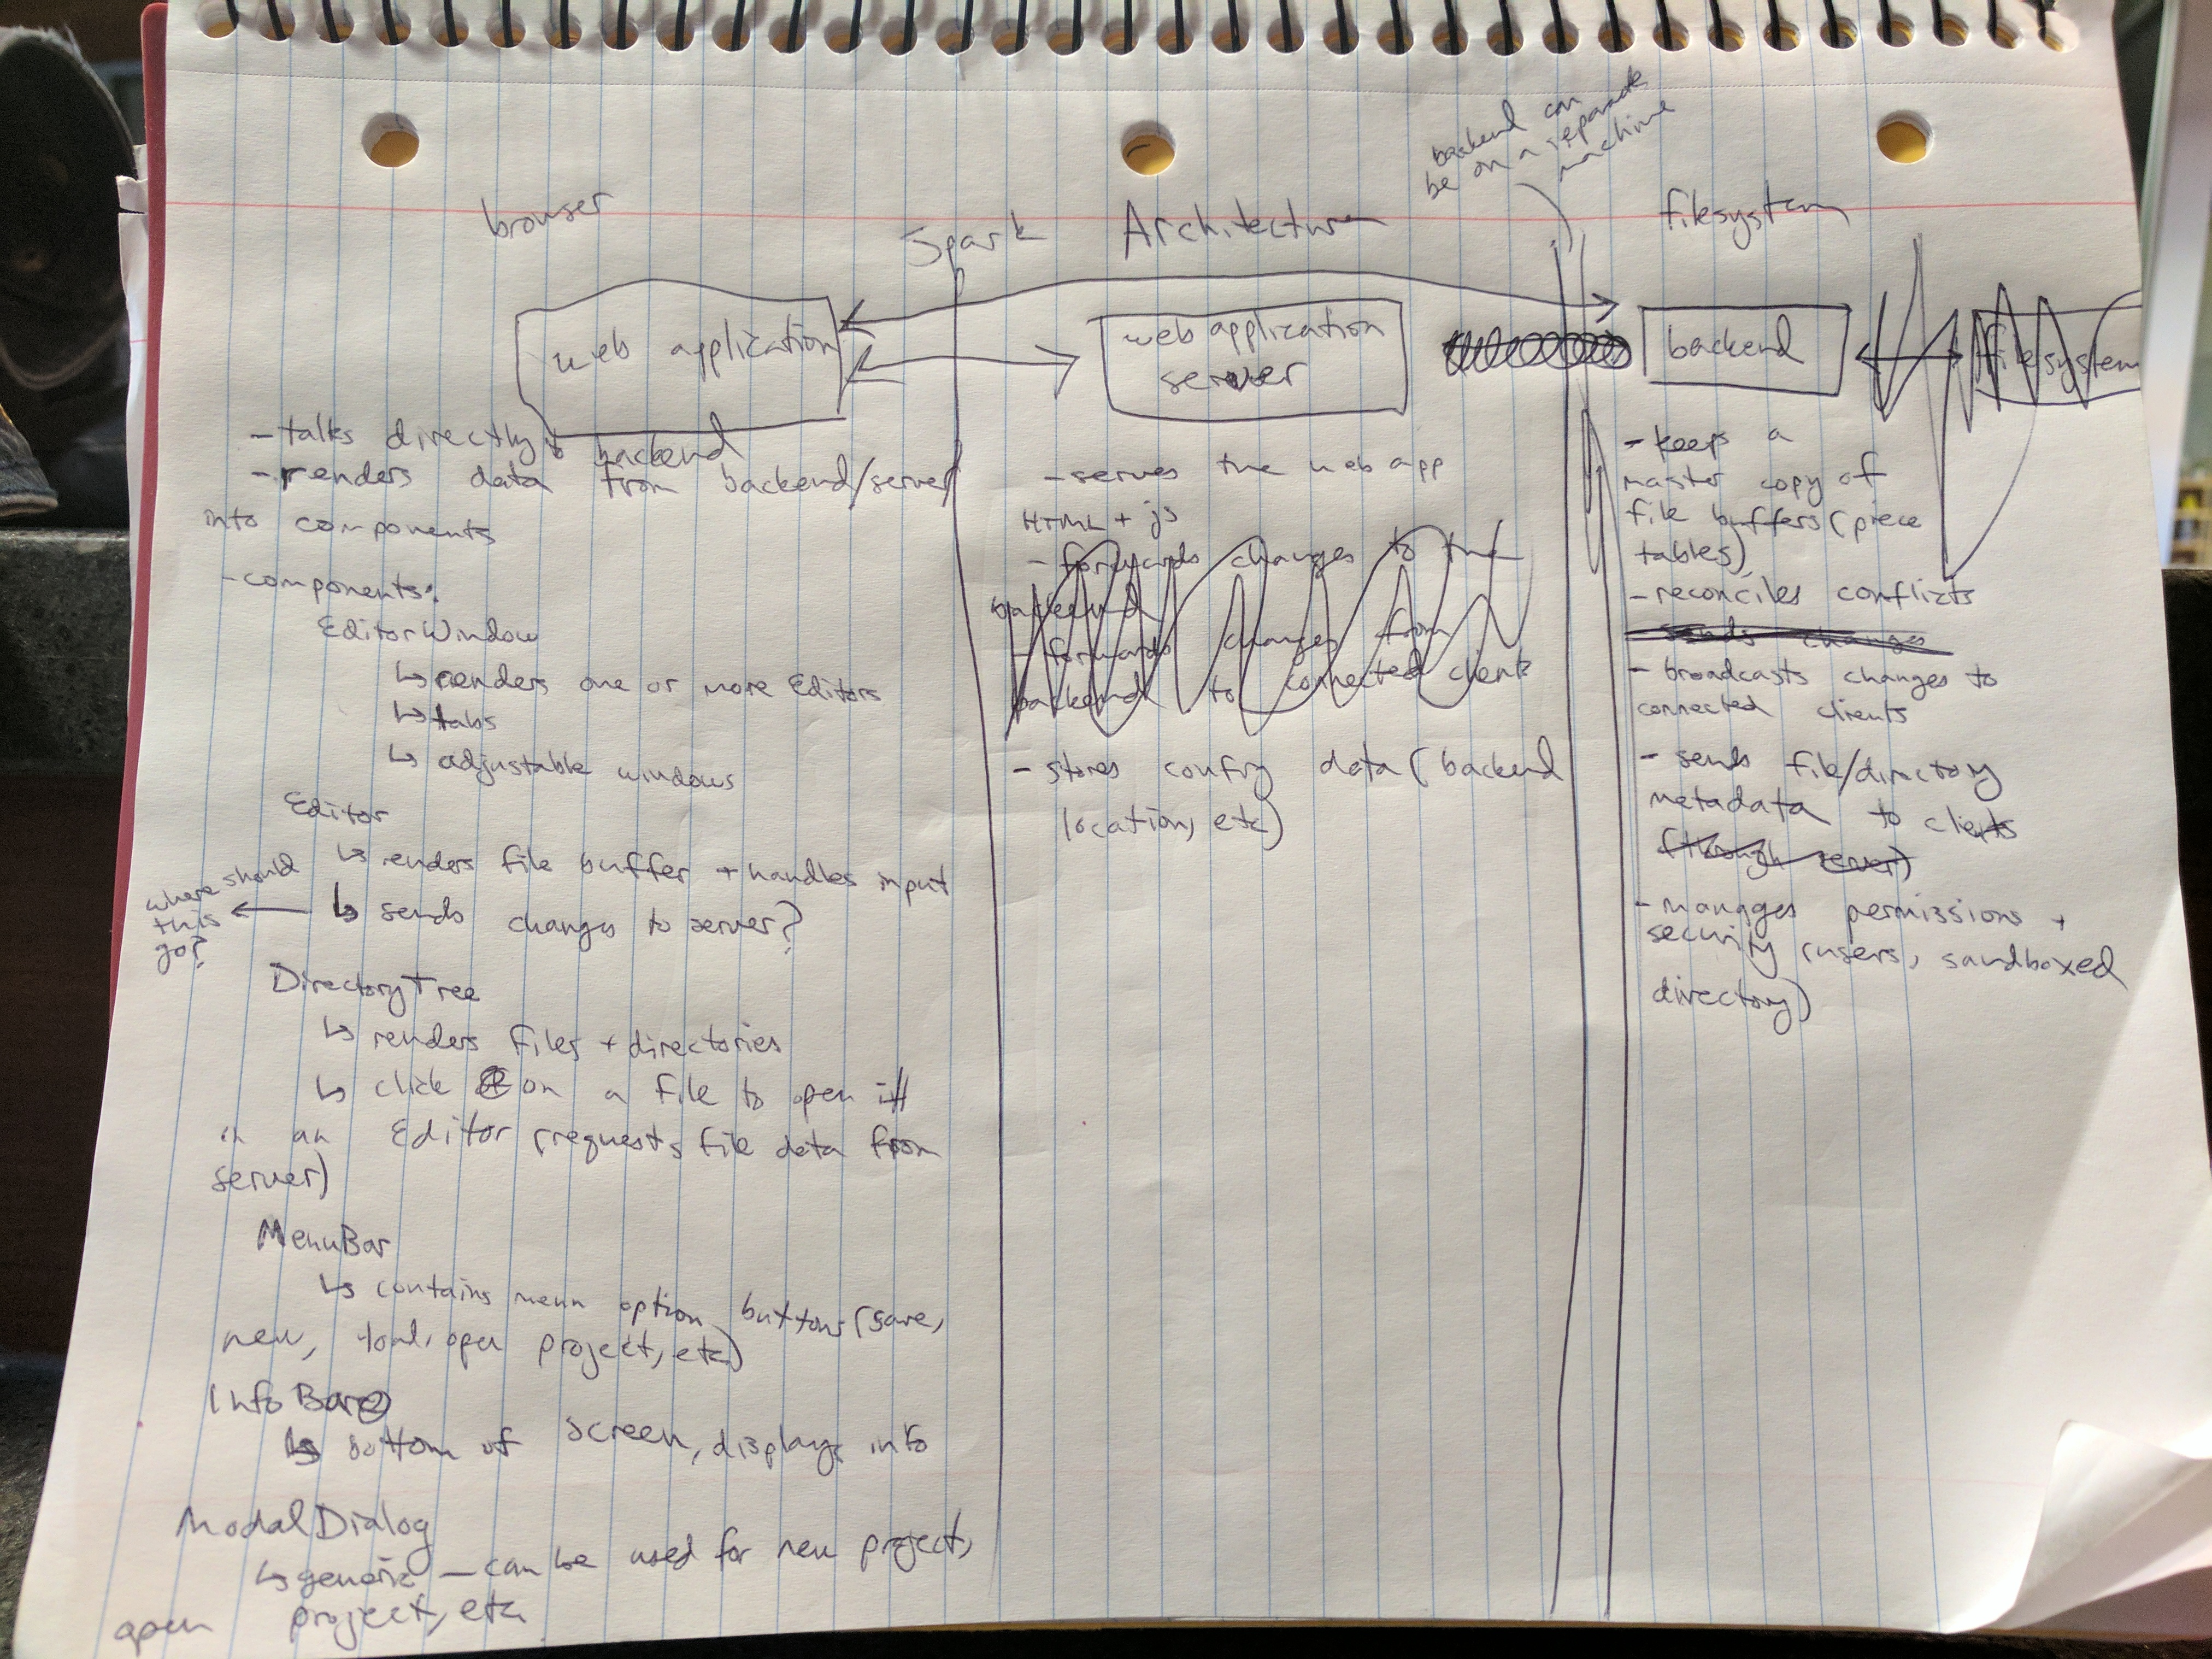 backend can
be on a separate
machine
browser
Spark Architecture
filesystem
web application
web application
server
backend
filesystem
- talks directly to backend
- renders data from backend/server
into components
- components:
EditorWindow
↳ renders one or more Editors
↳ tabs
↳ adjustable windows
Editor
↳ renders file buffer + handles input
↳ sends changes to server?
where should
this
go?
DirectoryTree
↳ renders files + directories
↳ click on a file to open it
in an Editor (requests file data from
server)
MenuBar
↳ contains menu option buttons (save,
new, load, open project, etc)
InfoBar
↳ bottom of screen, displays info
ModalDialog
↳ generic - can be used for new project,
open project, etc
- serves the web app
HTML + js
- forwards changes to the
backend
- forwards changes from
backend to connected clients
- stores config data (backend
location, etc)
- keeps a
master copy of
file buffers (piece
tables)
- reconciles conflicts
sends changes
- broadcasts changes to
connected clients
- sends file/directory
metadata to clients
(through server)
- manages permissions +
security (users, sandboxed
directory)